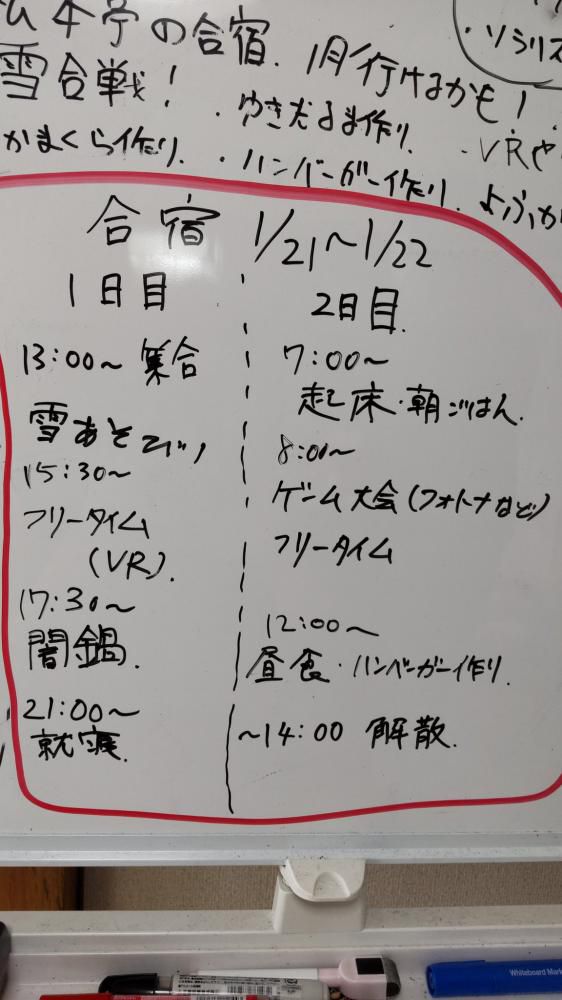 の合宿. 1月行けるかも!
雪合戦! ・ゆきだるま作り ・VRや
かまくら作り. ・ハンバーガー作り.
合宿 1/21〜1/22
1日目
13:00〜 集合
雪あそび!!
15:30〜
フリータイム
(VR).
17:30〜
闇鍋.
21:00〜
就寝.
2日目.
7:00〜
起床・朝ごはん.
8:00〜
ゲーム大会(フォトナなど)
フリータイム
12:00〜
昼食・ハンバーガー作り.
〜14:00 解散.
Whiteboard Mar